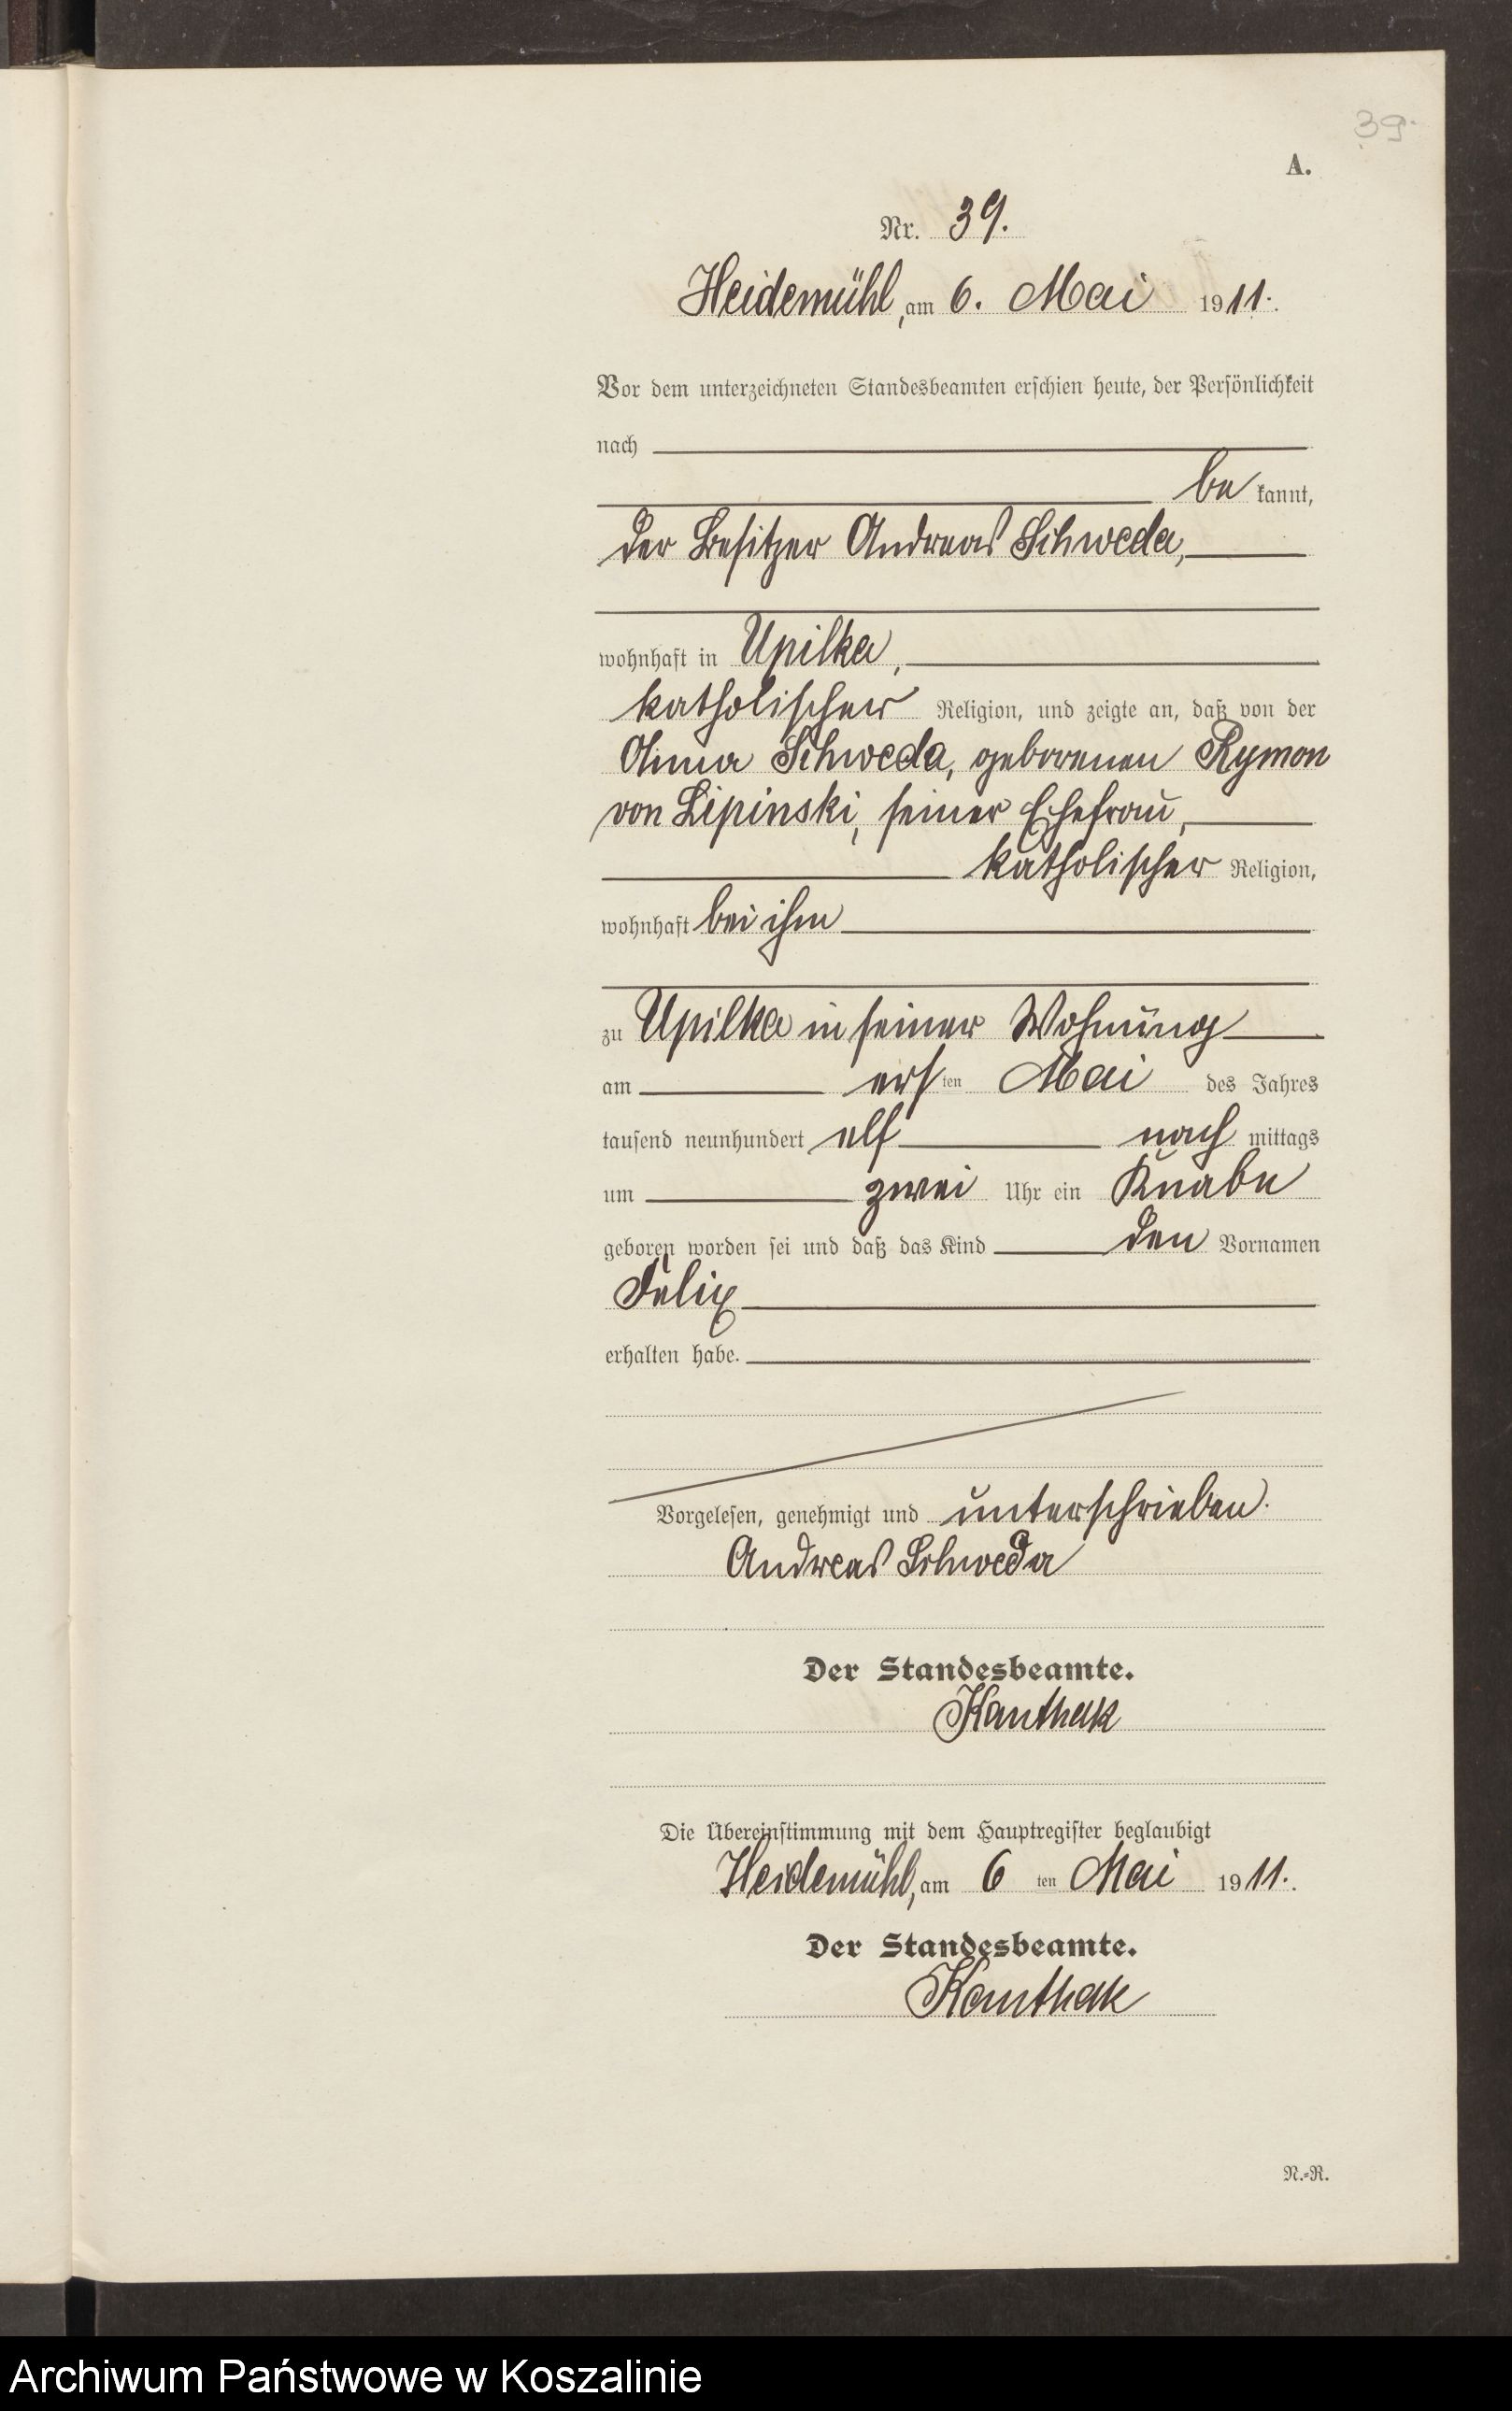 39.
A.
Nr. 39.
Heidemühl, am 6. Mai 1911.
Vor dem unterzeichneten Standesbeamten erschien heute, der Persönlichkeit
nach
be kannt,
der Besitzer Andreas Schweda,
wohnhaft in Upilka,
katholischer Religion, und zeigte an, daß von der
Anna Schweda, geborenen Rymon
von Lipinski, seiner Ehefrau,
katholischer Religion,
wohnhaft bei ihm
zu Upilka in seiner Wohnung
am ersten Mai des Jahres
tausend neunhundert elf nach mittags
um zwei Uhr ein Knabe
geboren worden sei und daß das Kind den Vornamen
Felix
erhalten habe.
Vorgelesen, genehmigt und unterschrieben.
Andreas Schweda
Der Standesbeamte.
Kanthak
Die Übereinstimmung mit dem Hauptregister beglaubigt
Heidemühl, am 6 ten Mai 1911.
Der Standesbeamte.
Kanthak
N.-R.
Archiwum Państwowe w Koszalinie